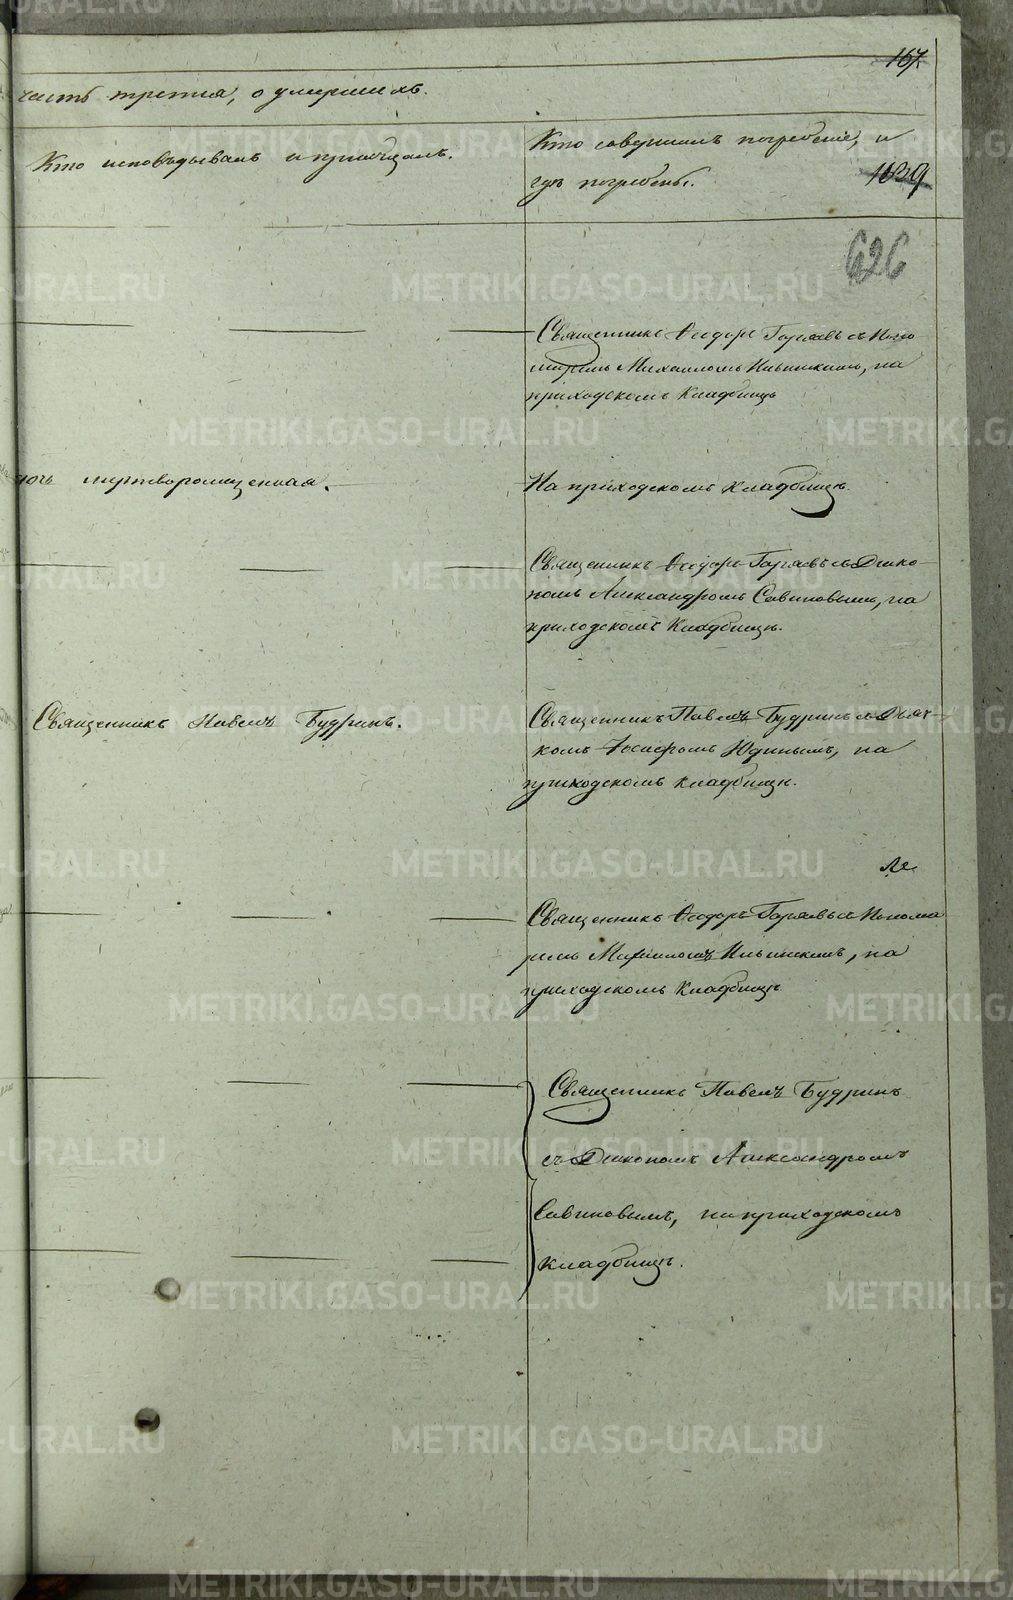 167.
часть третья, о умершихъ.
Кто исповѣдывалъ и пріобщалъ.
Кто совершалъ погребеніе, и
гдѣ погребены.
1629
626
Священникъ Ѳеодоръ Горяевъ съ Поно-
маремъ Михаиломъ Ильинскимъ, на
приходскомъ кладбищѣ
дочь мертворожденная.
На приходскомъ кладбищѣ.
Священникъ Ѳеодоръ Горяевъ съ Діако-
номъ Александромъ Савиновымъ, на
приходскомъ кладбищѣ.
Священникъ Павелъ Будринъ.
Священникъ Павелъ Будринъ съ Дьяч-
комъ Іосифомъ Юдинымъ, на
приходскомъ кладбищѣ.
Священникъ Ѳеодоръ Горяевъ съ Понома
ремъ Михаиломъ Ильинскимъ, на
приходскомъ кладбищѣ
Священникъ Павелъ Будринъ
съ Діакономъ Александромъ
Савиновымъ, на приходскомъ
кладбищѣ.
METRIKI.GASO-URAL.RU